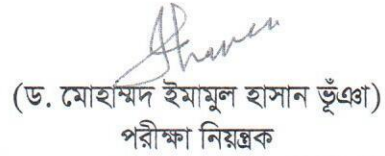 (ড. মোহাম্মদ ইমামুল হাসান ভূঁঞা)
পরীক্ষা নিয়ন্ত্রক